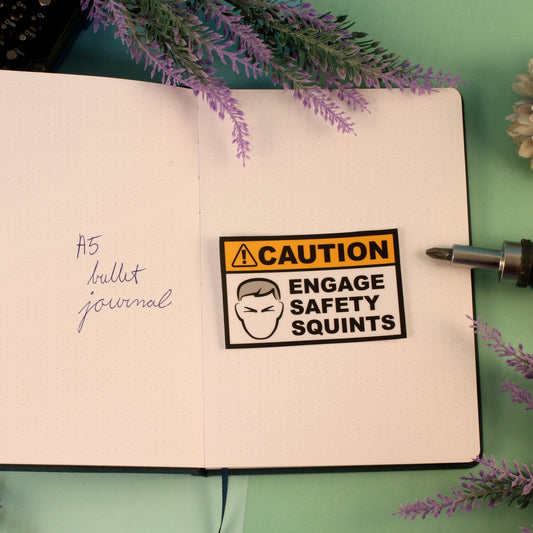 A5
bullet
journal
CAUTION
ENGAGE
SAFETY
SQUINTS